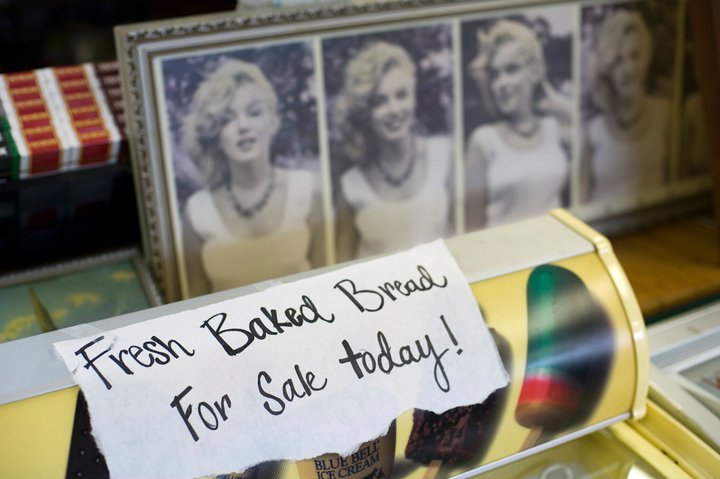 Fresh Baked Bread
For Sale today!
BLUE BELL
ICE CREAM